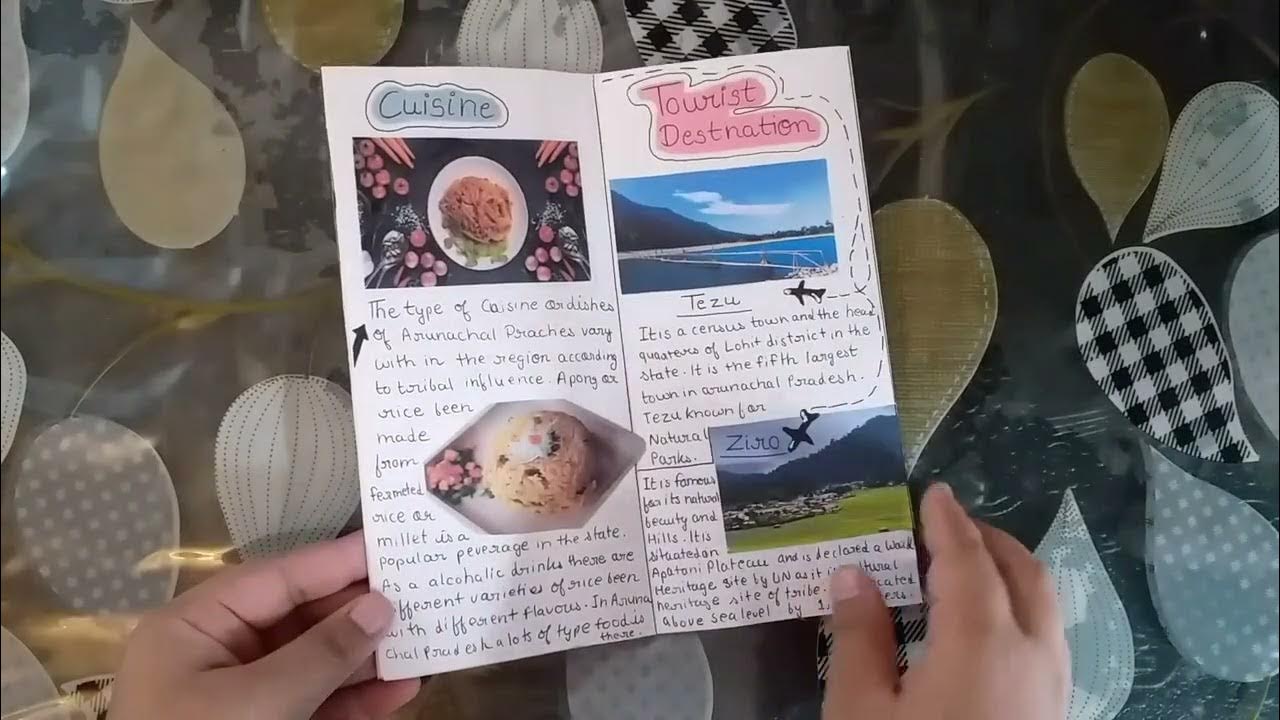 Cuisine
The type of Cuisine or dishes
of Arunachal Praches vary
with in the region according
to tribal influence. Apong or
rice been
made
from
fermeted
rice or
millet is a
popular peverage in the state.
As a alcoholic drinks there are
different varieties of rice been
with different flavous. In Aruna
chal Pradesh a lots of type food is
there.
Tourist
Destnation
Tezu
It is a census town and the head
quaters of Lohit district in the
state. It is the fifth largest
town in arunachal Pradesh.
Tezu known for
Natural
Parks.
Ziro
It is famous
for its natural
beauty and
Hills. It is
situated on
Apatani Plateau and is declared a World
Heritage site by UN as it is cultural
heritage site of tribe.
above sea level by